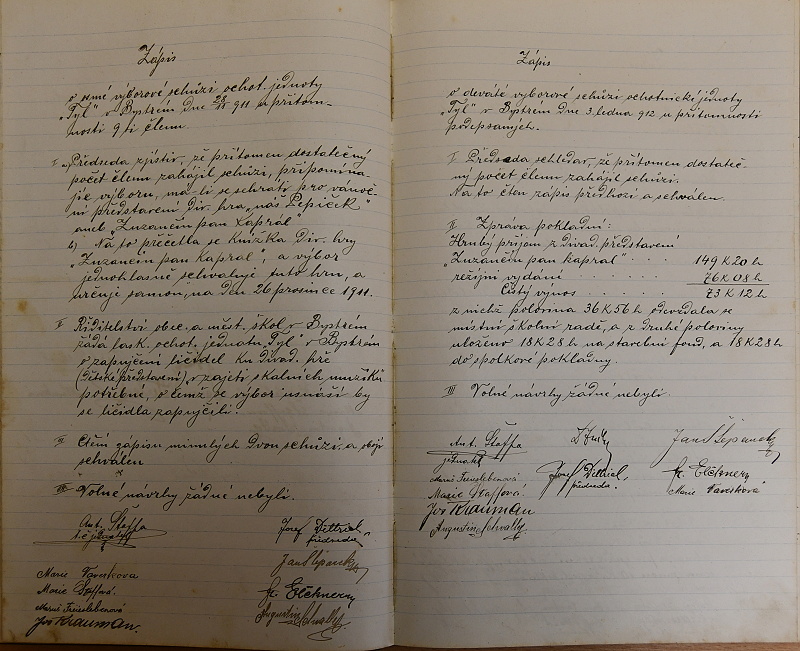 Zápis
o osmé výborové schůzi ochot. jednoty
„Tyl" v Bystrém dne 911 u přítom-
nosti 9ti členů
I. a Předseda zjistiv, že přítomen dostatečný
počet členů zahájil schůzi, připomína-
je výboru, má-li se sehráti pro vánoč-
ní představení div. hra „náš Pepíček"
aneb „Zuzančin pan kaprál"
b) Na to přečetla se knížka div. hry
„Zuzančin pan kaprál", a výbor
jednohlasně schvaluje tuto hru, a
určuje samou, na den 26 prosince 1911.
II Ředitelství obec. a měst. škol v Bystrém
žádá lask. ochot. jednotu „Tyl" v Bystrém
o zapůjčení líčidel ku divad. hře
(dětské představení), v zajetí skalních mužíků
potřebné, o čemž se výbor usnáší by
se líčidla zapůjčili.
Čtení zápisu minulých dvou schůzí, a
schválen
Volné návrhy žádné nebyli.
Ant. Štaffa
jednatel
Josef Dittrich
předseda
Jan Štěpánek
Marie Tavesková
Marie Štaffová.
Fr. Elčkner
Marie Freislebenová
Augustin
Jos Krauman.
Zápis
o deváté výborové schůzi ochotnické jednoty
„Tyl" v Bystrém dne 3. ledna 912 u přítomnosti
podepsaných.
I Předseda schledav, že přítomen dostateč-
ný počet členů zahájil schůzi.
Na to čten zápis předhozí a schválen.
II Zpráva pokladní:
Hrubý příjem z divad. představení
„Zuzančin pan kaprál" . . . 149 K 20 h
režijní vydání . . . . . . 76 K 08 h
Čistý výnos . . . . 73 K 12 h
z nichž polovina 36 K 56 h odevzdala se
místní školní radě, a z druhé poloviny
uloženo 18 K 28 h na stavební fond, a 18 K 28 h
do spolkové pokladny.
III Volné návrhy žádné nebyli.
Ant. Štaffa
jednatel
Jan Štěpánek
Marie Freislebenová
Josef Dittrich
předseda.
Fr. Elčkner
Marie Štaffová
Marie Tavesková
Jos Krauman
Augustin